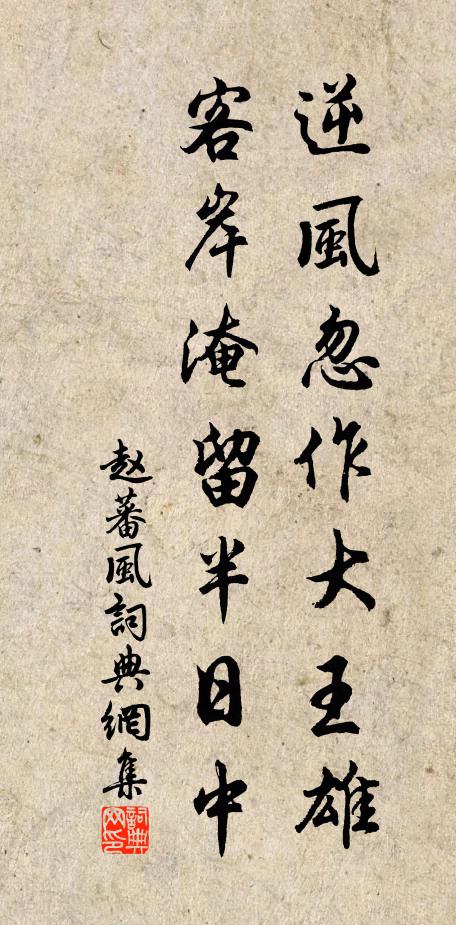 逆風忽作大王雄
客岸淹留半日中
赵蕃風詞典網集
詞典
网印